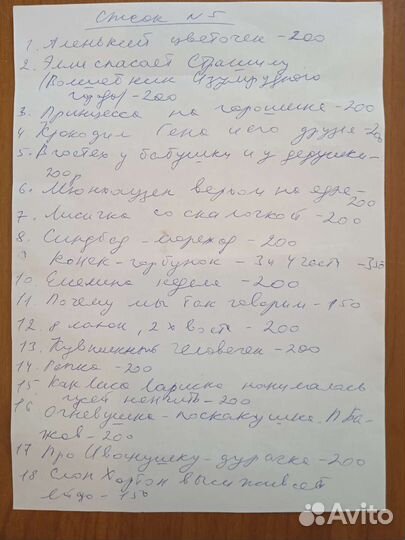 Список №5
1. Аленький цветочек - 200
2. Элли спасает Страшилу
(Волшебник Изумрудного
города) - 200
3. Принцесса на горошине - 200
4 Крокодил Гена и его друзья - 200
5. В гостях у бабушки и у дедушки -
200
6. Мюнхаузен верхом на ядре -
200
7. Лисичка со скалочкой - 200
8. Синдбад - мореход - 200
9 Конек - горбунок - 3 и 4 часть - 350
10. Емелина неделя - 200
11. Почему мы так говорим - 150
12. 8 лапок, 2 хвост - 200
13. Кувшинный человечек - 200
14. Репка - 200
15 Как Лиса Лариска нанималась
гусей - 200
16 Огневушка - поскакушка. П. Ба-
жов - 200
17 Про Иванушку - дурачка - 200
18. Слон Хортон высиживает
яйцо - 150
Avito